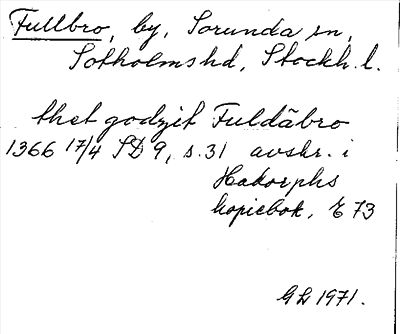 Fullbro, by, Sorunda sn,
Sotholms hd, Stockh. l.
thet godzit Fuldäbro
1366 17/4 SD 9, s. 31 avskr. i
Hadorphs
kopiebok, E 73
GL 1971.